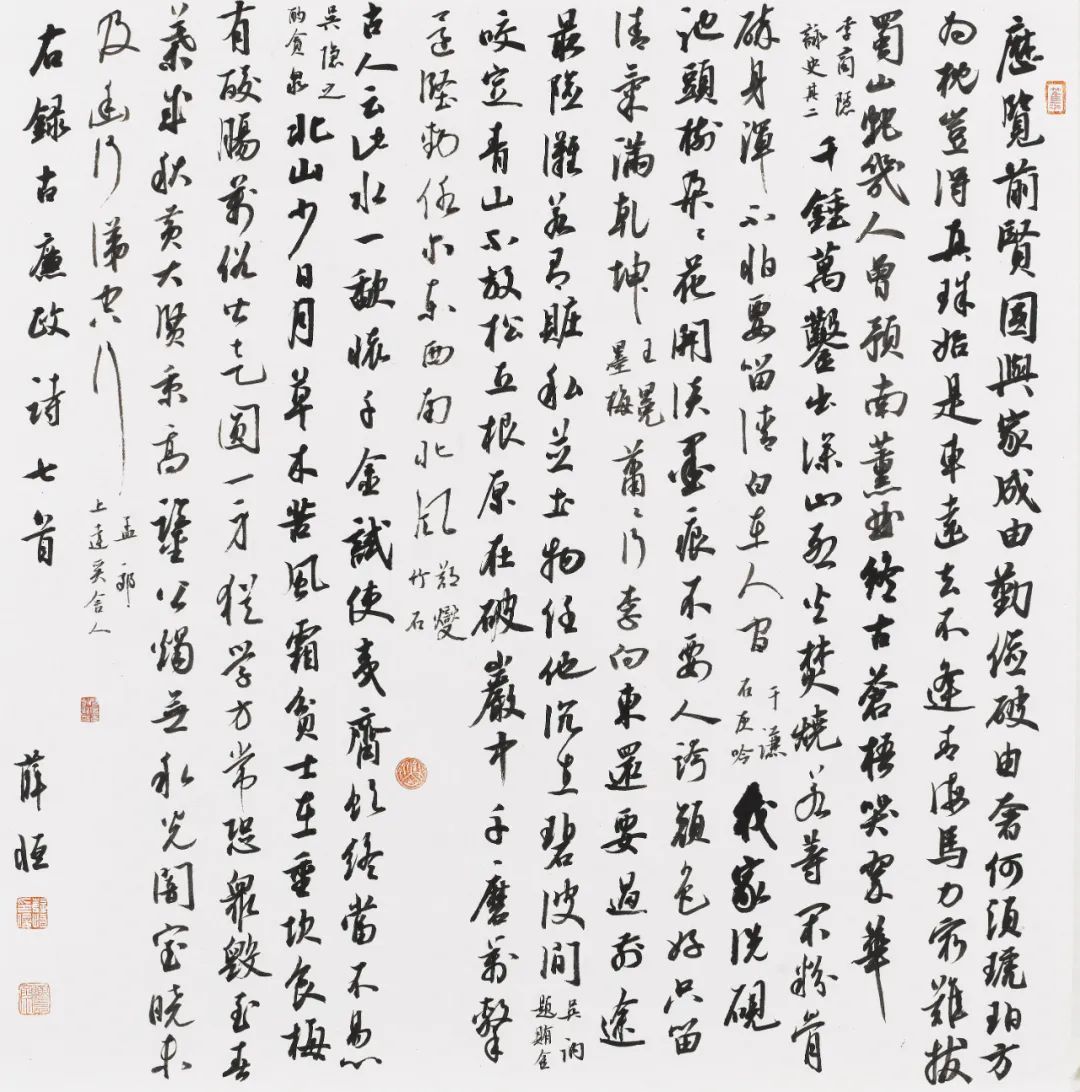 歷覽前賢國與家成由勤儉破由奢何須琥珀方
為枕豈得真珠始是車遠去不逢青海馬力窮難拔
蜀山蛇幾人曾預南薰曲終古蒼梧哭翠華
李商隱
詠史其二
千錘萬鑿出深山烈火焚燒若等閑粉骨
碎身渾不怕要留清白在人間
于謙
石灰吟
我家洗硯
池頭樹朵〻花開淡墨痕不要人誇顏色好只留
清氣滿乾坤
王冕
墨梅
蕭〻行李向東還要過前途
最險灘若有贓私並土物任他沉在碧波間
吳訥
題賄金
咬定青山不放松立根原在破巖中千磨萬擊
還堅勁任尔東西南北風
鄭燮
竹石
古人云此水一歃懷千金試使夷齊飲終當不易心
吳隱之
酌貪泉
北山少日月草木苦風霜貧士在重坎食梅
有酸腸萬俗皆走圓一身猶學方常恐眾毀至春
葉成秋黃大賢秉高鑒公燭無私光闇室曉未
及幽行涕空行
孟郊
上達奚舍人
右錄古廉政詩七首
薛恒